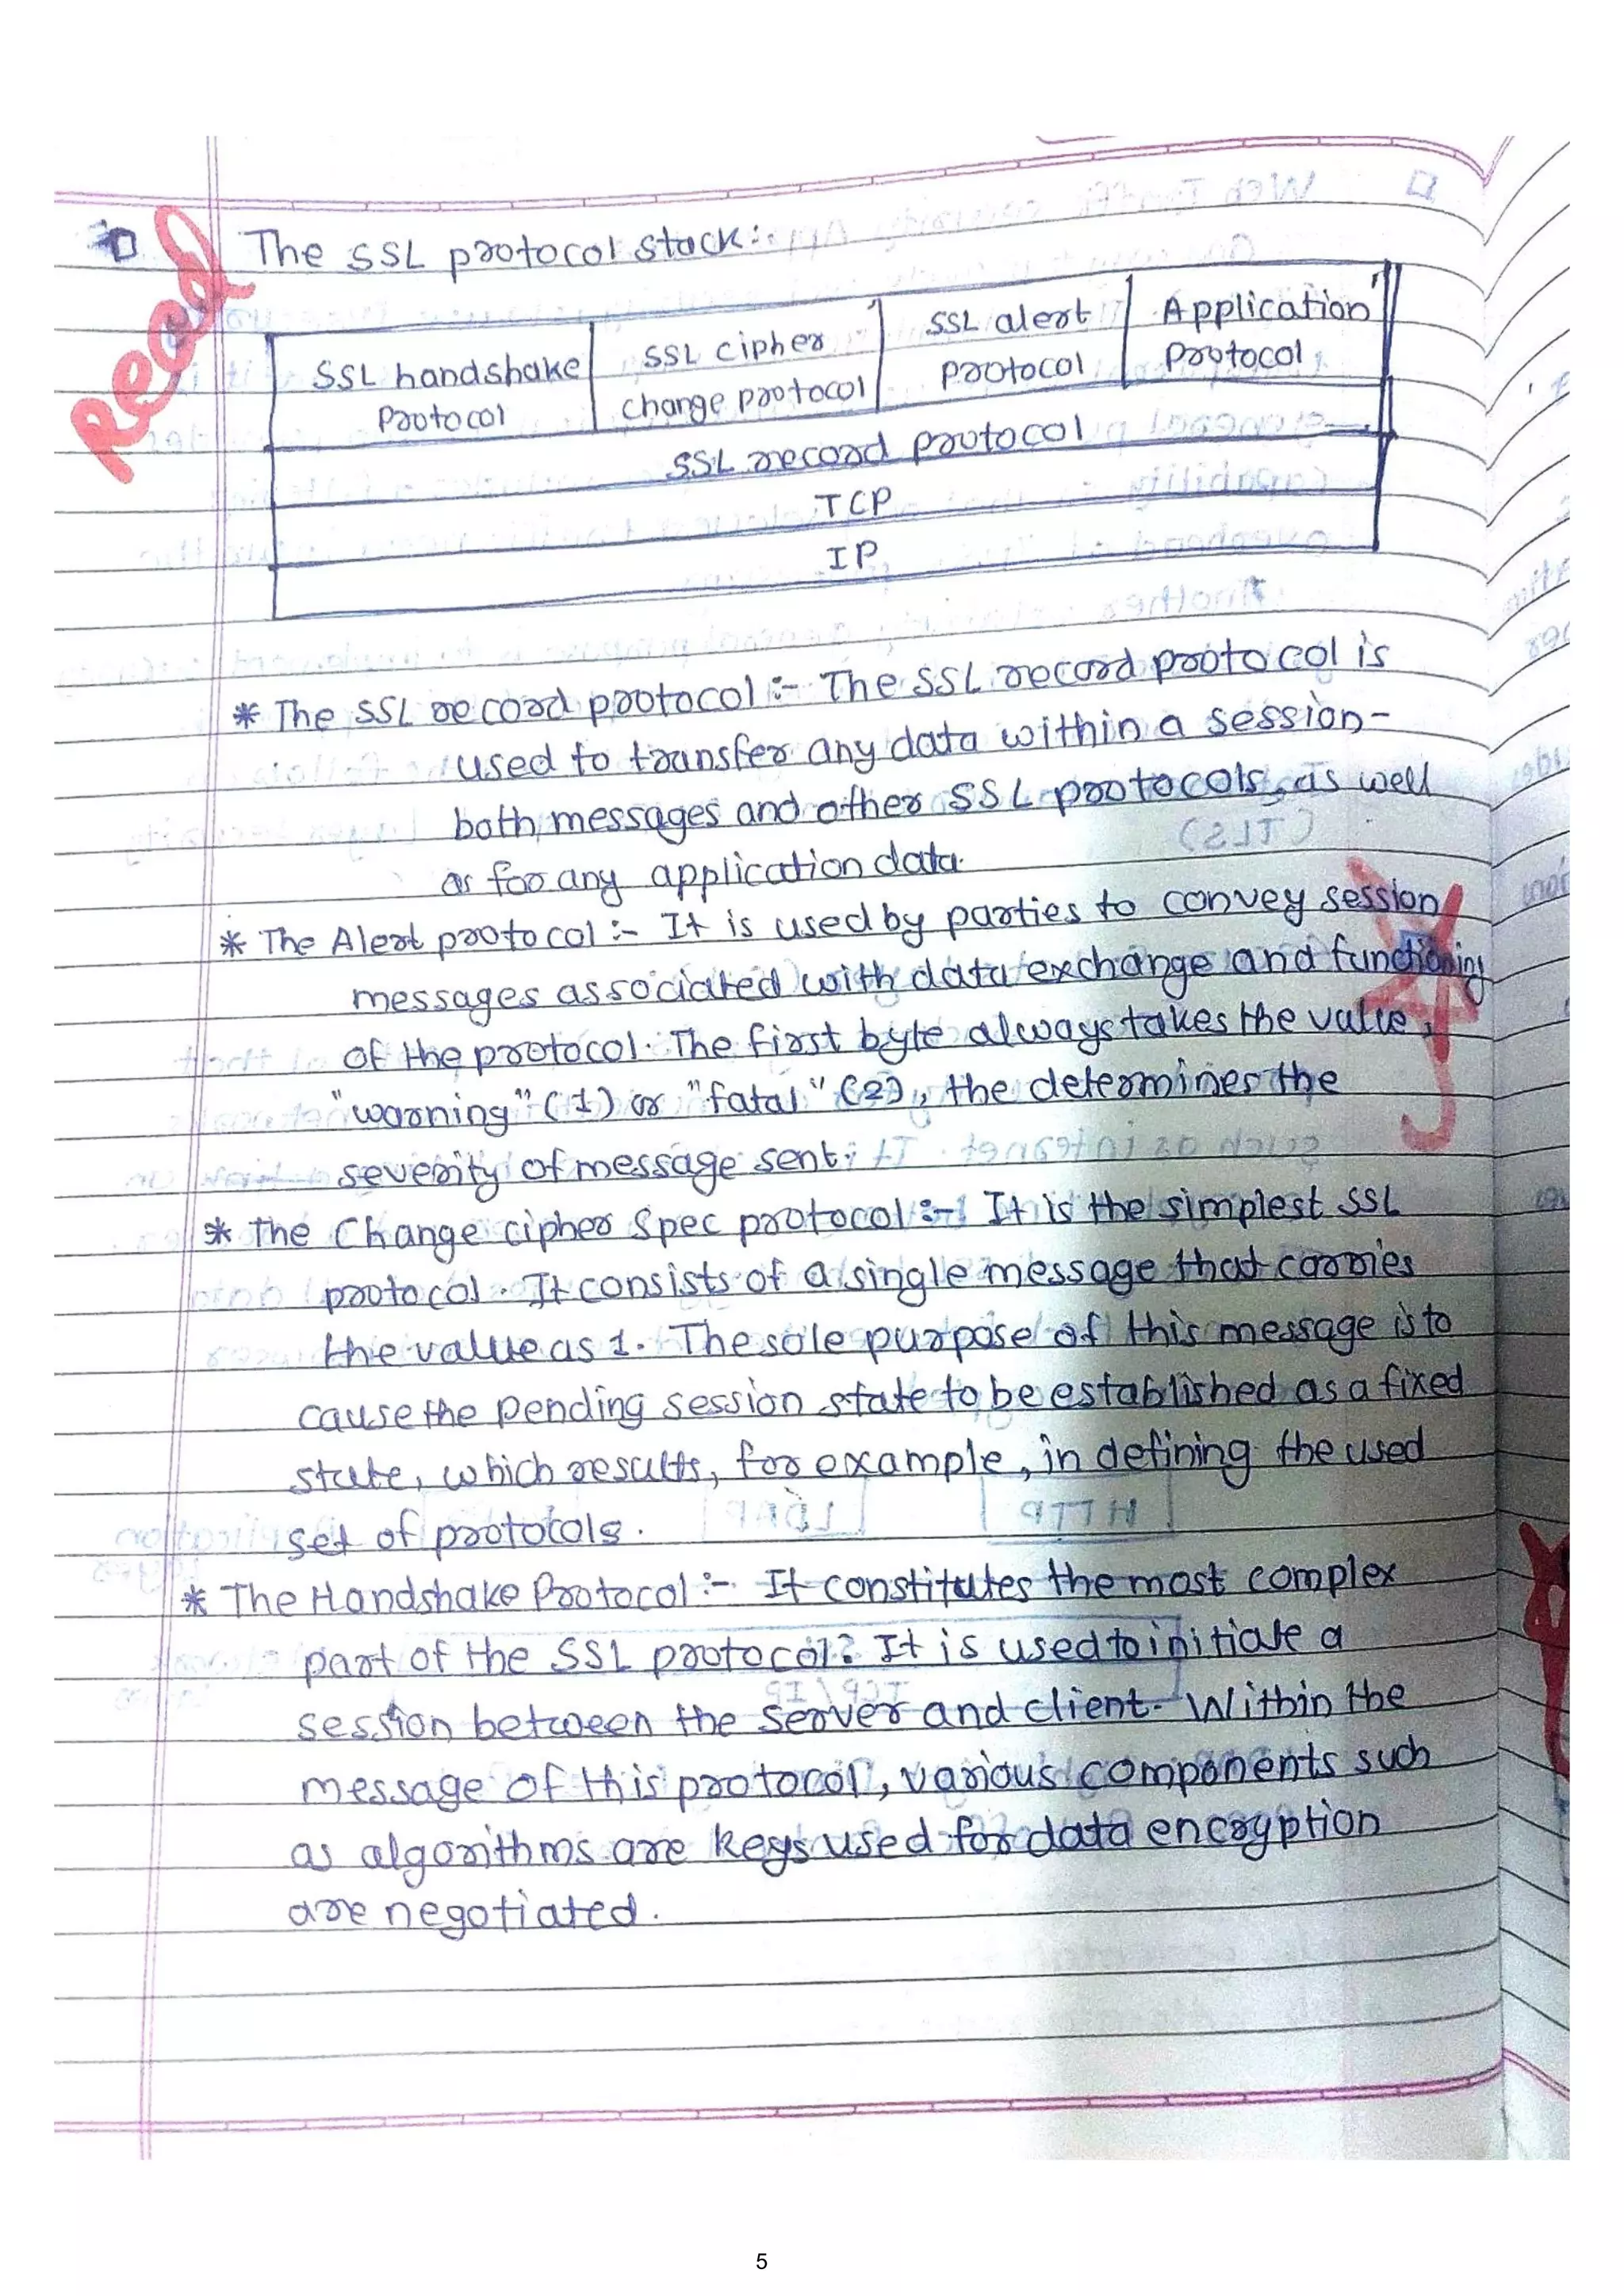 Read
The SSL protocol stack:-
SSL handshake Protocol
SSL cipher change protocol
SSL alert protocol
Application Protocol
SSL record protocol
TCP
IP
* The SSL record protocol :- The SSL record protocol is
used to transfer any data within a session-
both messages and other SSL protocols, as well
as for any application data.
* The Alert protocol :- It is used by parties to convey session
messages associated with data exchange and functioning
of the protocol. The first byte always takes the value,
"warning" (1) or "fatal" (2), the determines the
severity of message sent.
* The Change cipher Spec protocol :- It is the simplest SSL
protocol. It consists of a single message that carries
the value as 1. The sole purpose of this message is to
cause the pending session state to be established as a fixed
state, which results, for example, in defining the used
set of protocols.
* The Handshake Protocol :- It constitutes the most complex
part of the SSL protocol. It is used to initiate a
session between the server and client. Within the
message of this protocol, various components such
as algorithms are keys used for data encryption
are negotiated.
5